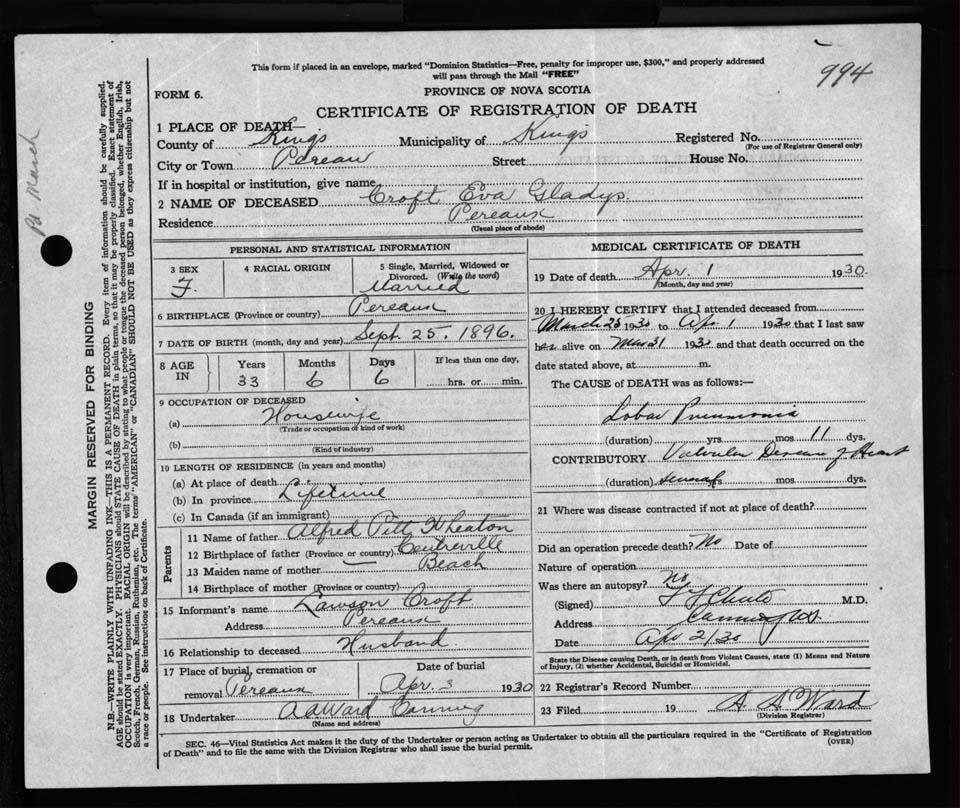 This form if placed in an envelope, marked "Dominion Statistics—Free, penalty for improper use, $300," and properly addressed
will pass through the Mail "FREE"
994
FORM 6.
PROVINCE OF NOVA SCOTIA
CERTIFICATE OF REGISTRATION OF DEATH
1 PLACE OF DEATH—
County of Kings Municipality of Kings Registered No.
(For use of Registrar General only)
City or Town Pereau Street House No.
If in hospital or institution, give name
2 NAME OF DECEASED Croft Eva Gladys
Residence Pereaux
(Usual place of abode)
PERSONAL AND STATISTICAL INFORMATION
3 SEX
F.
4 RACIAL ORIGIN
5 Single, Married, Widowed or
Divorced. (Write the word)
Married
6 BIRTHPLACE (Province or country) Pereaux
7 DATE OF BIRTH (month, day and year) Sept. 25. 1896.
8 AGE IN
Years Months Days If less than one day,
33 6 6 hrs. or min.
9 OCCUPATION OF DECEASED
(a) Housewife
(Trade or occupation of kind of work)
(b)
(Kind of industry)
10 LENGTH OF RESIDENCE (in years and months)
(a) At place of death
(b) In province Lifetime
(c) In Canada (if an immigrant)
Parents
11 Name of father Alfred Pitt Wheaton
12 Birthplace of father (Province or country) Centreville
13 Maiden name of mother — Beach
14 Birthplace of mother (Province or country)
15 Informant's name Lawson Croft
Address Pereaux
16 Relationship to deceased Husband
17 Place of burial, cremation or
removal Pereaux
Date of burial
Apr. 3 1930
18 Undertaker A A Ward Canning
(Name and address)
MEDICAL CERTIFICATE OF DEATH
19 Date of death Apr. 1 1930.
(Month, day and year)
20 I HEREBY CERTIFY that I attended deceased from
March 25 1930 to Apr 1 1930 that I last saw
her alive on Mar 31 1930 and that death occurred on the
date stated above, at m.
The CAUSE of DEATH was as follows:—
Lobar Pneumonia
(duration) yrs. mos 11 dys.
CONTRIBUTORY Valvular Disease of Heart
(duration) several yrs. mos. dys.
21 Where was disease contracted if not at place of death?
Did an operation precede death? No Date of
Nature of operation
Was there an autopsy? no
(Signed) M.D.
Address Canning NS.
Date Apr 2/30
State the Disease causing Death, or in death from Violent Causes, state (1) Means and Nature
of Injury, (2) whether Accidental, Suicidal or Homicidal.
22 Registrar's Record Number
23 Filed 19 A. A. Ward
(Division Registrar)
SEC. 46—Vital Statistics Act makes it the duty of the Undertaker or person acting as Undertaker to obtain all the particulars required in the "Certificate of Registration
of Death" and to file the same with the Division Registrar who shall issue the burial permit.
(OVER)
MARGIN RESERVED FOR BINDING
N.B.—WRITE PLAINLY WITH UNFADING INK—THIS IS A PERMANENT RECORD. Every item of information should be carefully supplied.
AGE should be stated EXACTLY. PHYSICIANS should STATE CAUSE OF DEATH in plain terms, so that it may be properly classified. Exact statement of
OCCUPATION is very important. RACIAL ORIGIN will be described by stating to what people or tongue the deceased person belonged, whether English, Irish,
Scotch, French, German, Russian, Ruthenian, etc. The terms "AMERICAN" or "CANADIAN" SHOULD NOT BE USED as they express citizenship but not
a race or people. See instructions on back of Certificate.